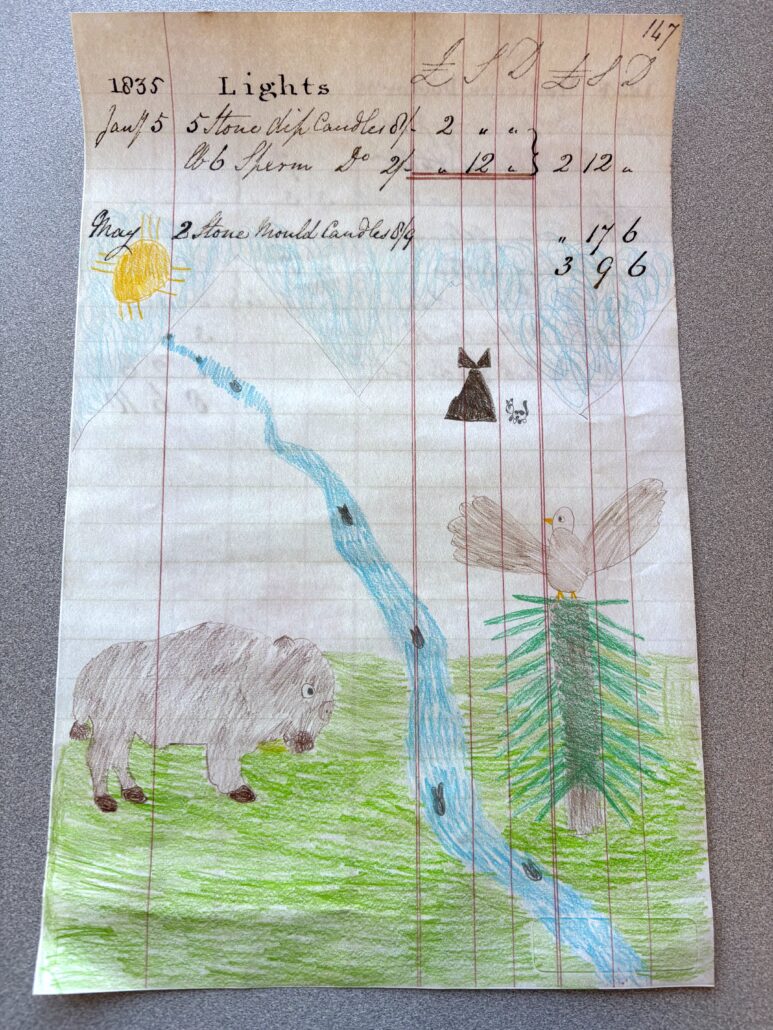 147
£ S D £ S D
1835 Lights
Jany 5 5 Stone dip Candles 8/- 2 " "
6 Sperm Do 2/- " 12 " } 2 12 "
May 2 Stone Mould Candles 8/9 " 17 6
3 9 6